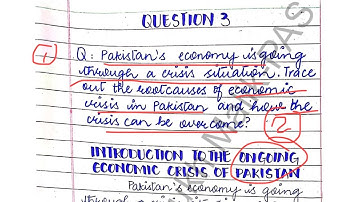 QUESTION 3
Q: Pakistan's economy is going
through a crisis situation. Trace
out the rootcauses of economic
crisis in Pakistan and how the
crisis can be overcome?
2
INTRODUCTION TO THE ONGOING
ECONOMIC CRISIS OF PAKISTAN
Pakistan's economy is going
through a crisis